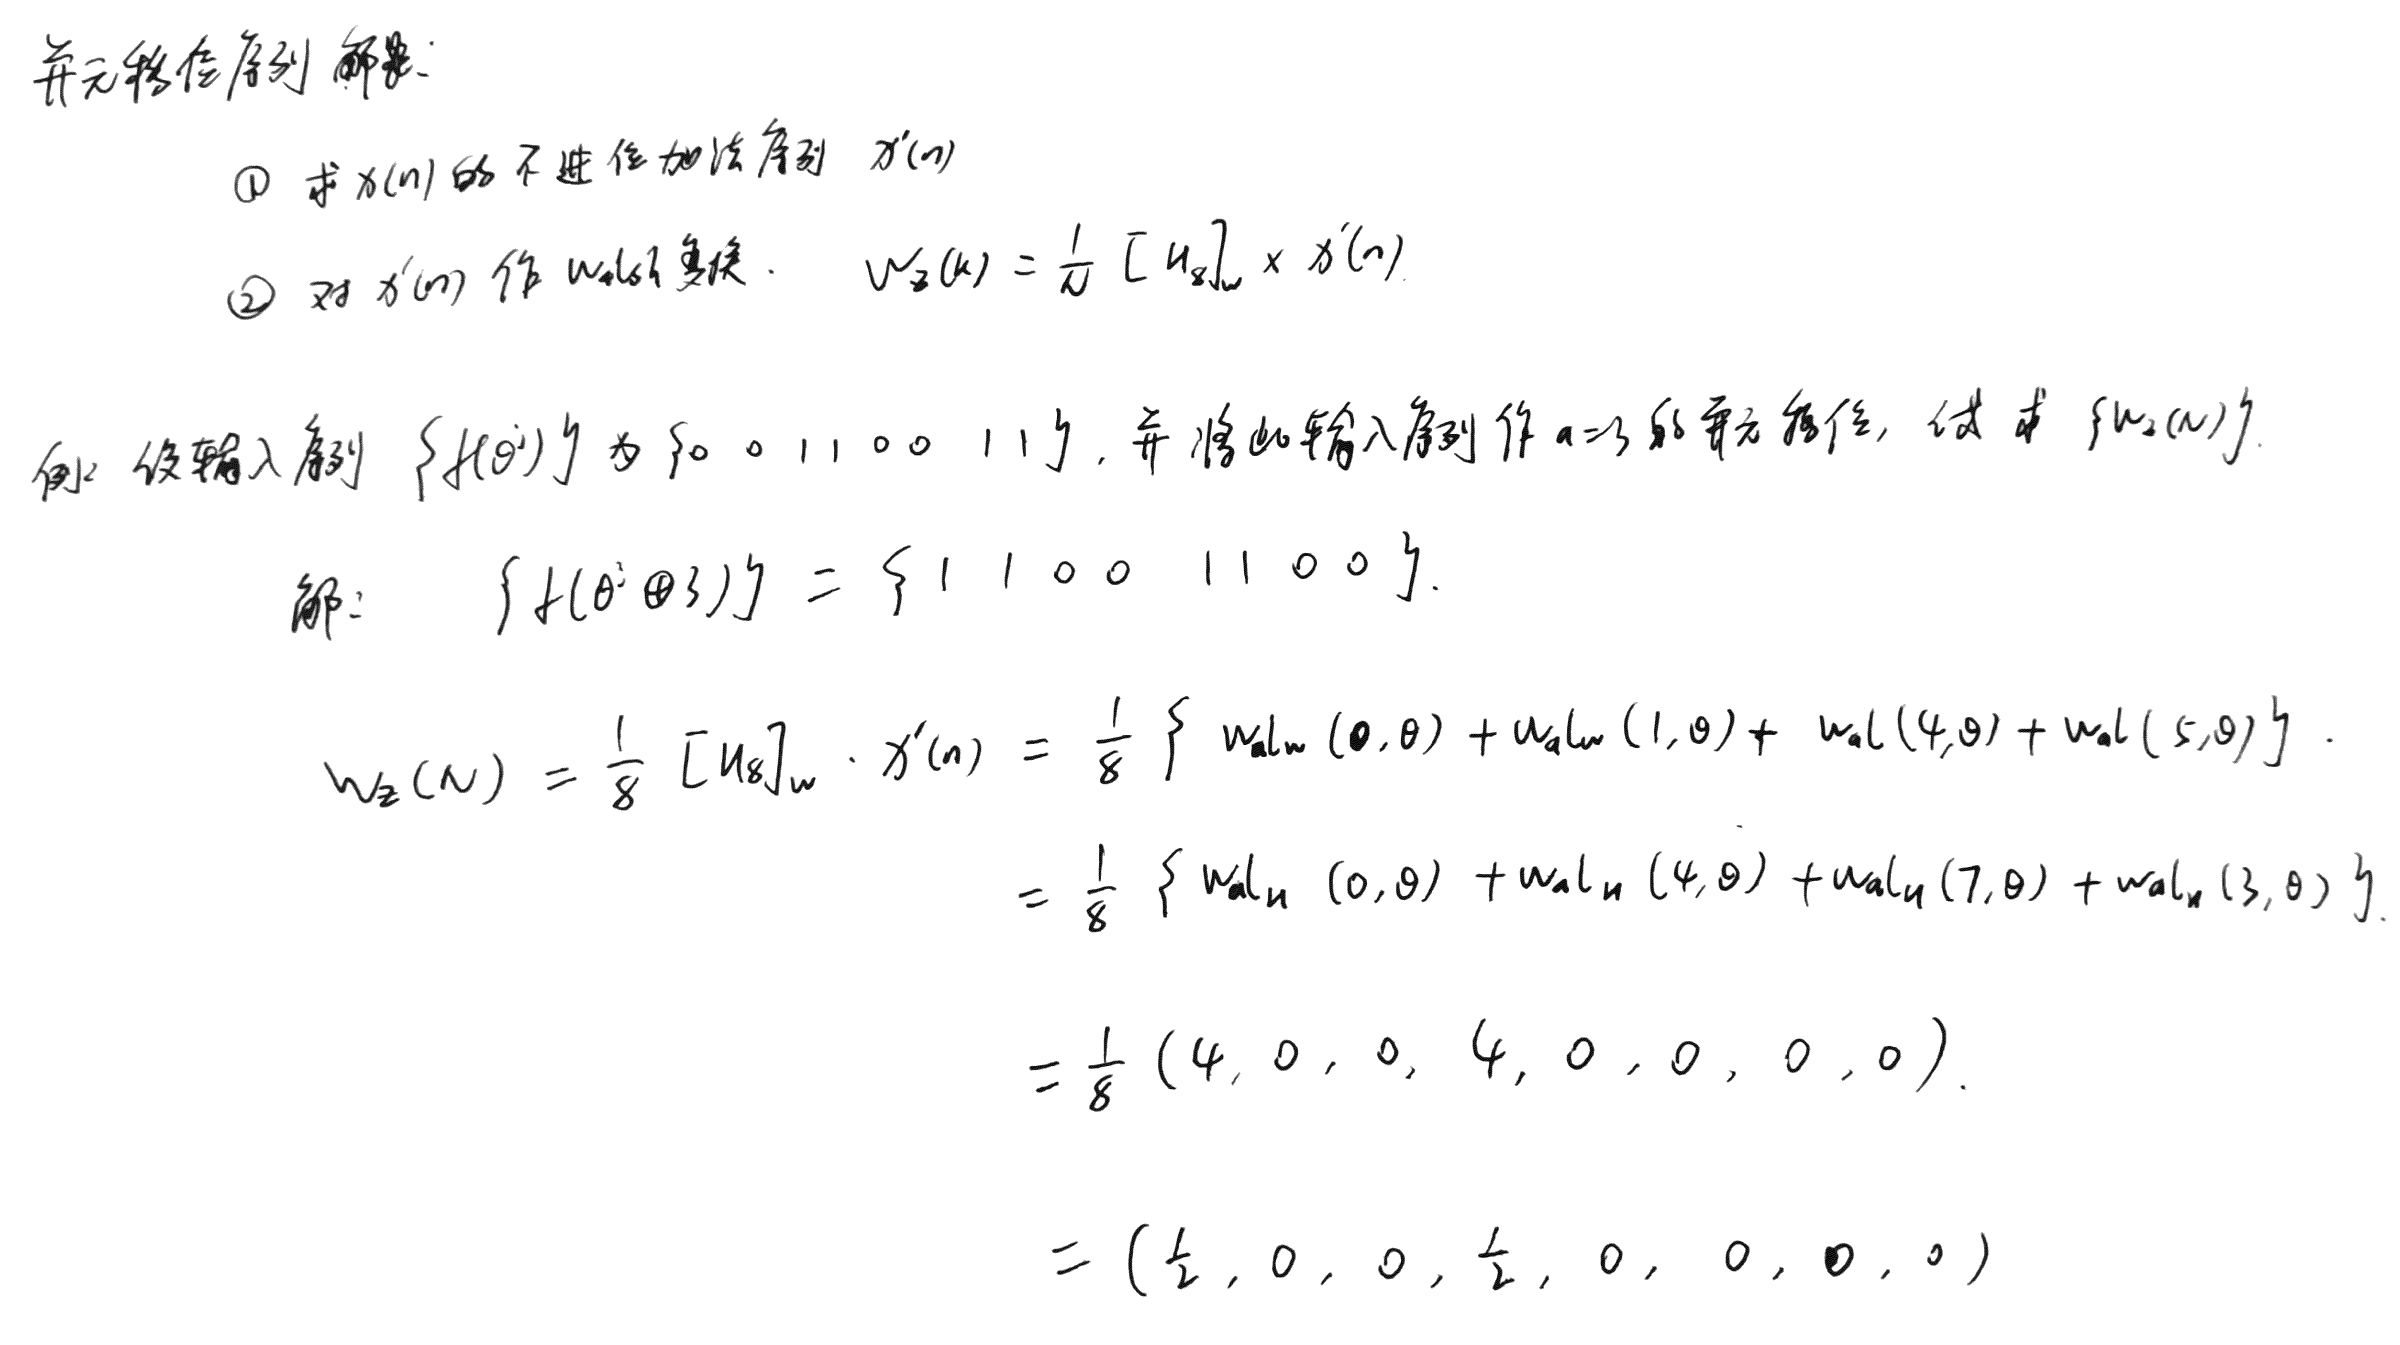 并元移位序列 解题:
① 求 x(n) 的不进位加法序列 x'(n)
② 对 x'(n) 作 Walsh 变换. W₂(k) = 1/N [H₈]w × x'(n).
例: 设输入序列 {f(θⁱ)} 为 {0 0 1 1 0 0 1 1}, 并将此输入序列作 a=3 的并元移位, 试求 {W₂(N)}.
解: {f(θⁱ⊕3)} = {1 1 0 0 1 1 0 0}.
W₂(N) = 1/8 [H₈]w · x'(n) = 1/8 { walw (0,θ) + walw (1,θ) + wal (4,θ) + wal (5,θ) }.
= 1/8 { walH (0,θ) + walH (4,θ) + walH (7,θ) + walH (3,θ) }.
= 1/8 (4, 0, 0, 4, 0, 0, 0, 0).
= (1/2, 0, 0, 1/2, 0, 0, 0, 0)